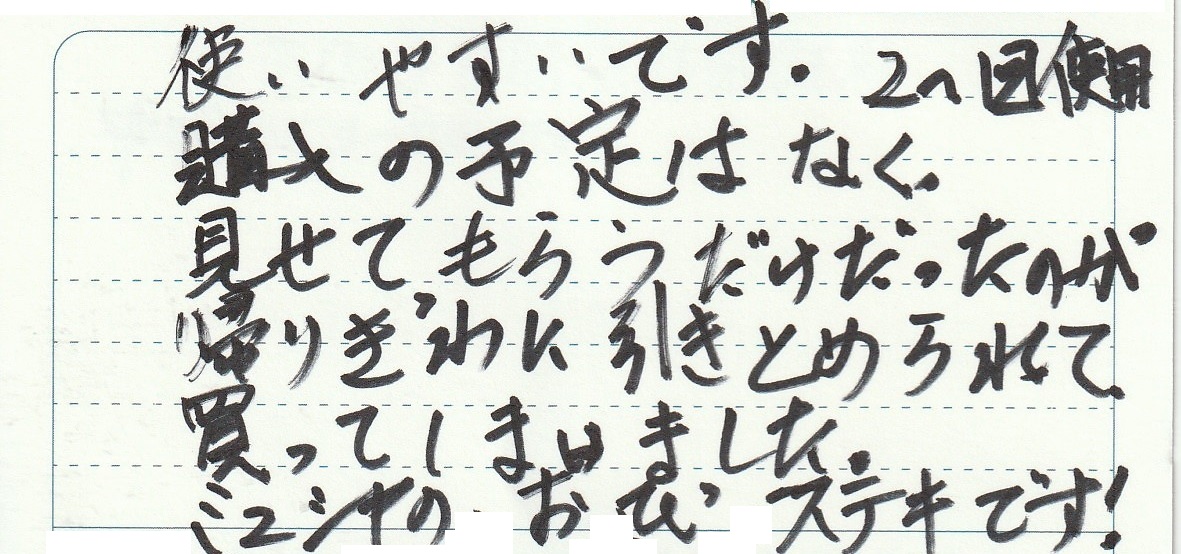 使いやすいです。 2〜回使用
購入の予定はなく。
見せてもらうだけだったのが
帰りぎわに引きとめられて
買ってしまいました。
ミュシャの おび ステキです!